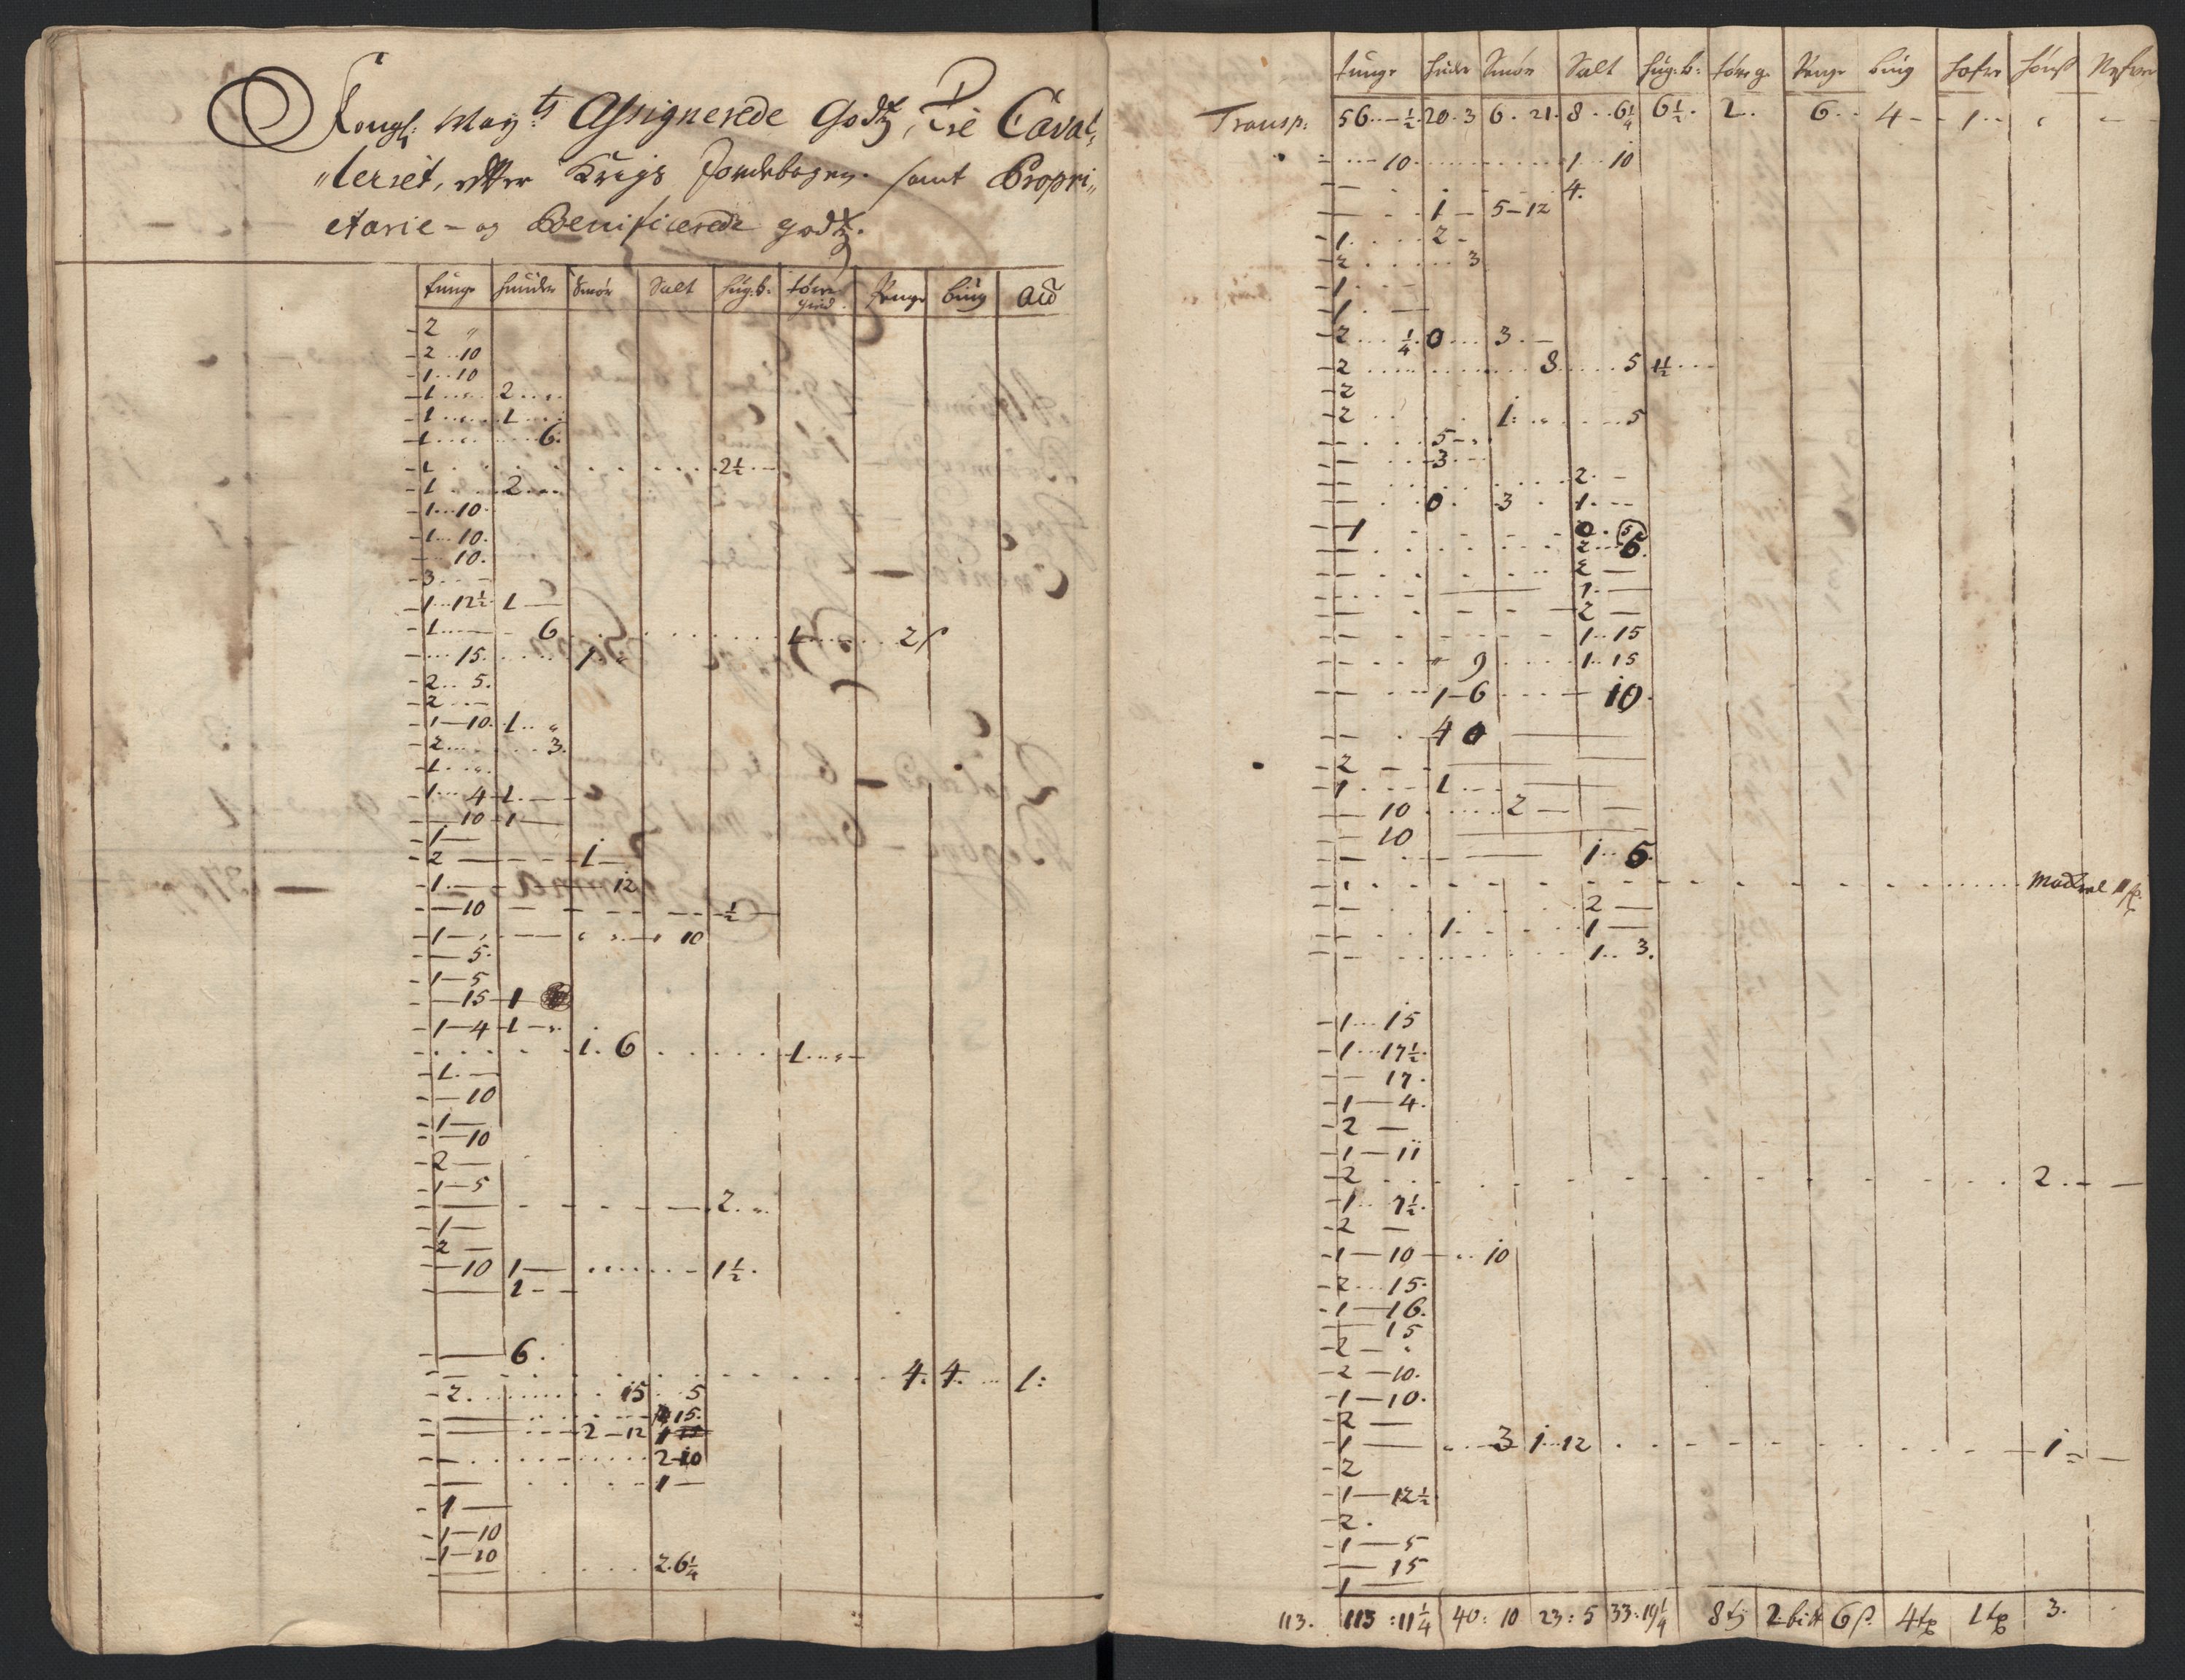 Kongl: May:ts Assignerede Godtz, Til Caval,,
,,leriet, efter Krigs Jordebogen. samt Propri,,
etarie - og Benificerede godtz.
tunge huuder Smør Salt hug.b. tørre gied Penge biug
2 "
2 .. 10
1 .. 10
1 .... 2 ....
1 .... 1 ....
1 ....... 6.
1 . . . . . . 2½ . —
1 .... 2 ...
1 .. 10.
1 .. 10.
10.
3 . . —
1 .. 12½ 1 —
1 .. — 6 . . . . . 1 ..... 2 ß
15. ..... 1 "
2 .. 5.
2 .. —
1 — 10. 1 .. "
2 ...... 3.
1 . . ".
1 ... 4 1 . —
10 — 1 —
1 —
2 — — — 1 —
1 . — — 12
— 10 — — — — ½ —
1 — . — " .. — 10
— 5.
1 — 5
— 15 — 1
1 — 4 — 1 — ".
. . . . 1 . 6 . . . . . 1 .. " —
1 . —
— 10
1 —
— 10
2 —
1 — 5
— - - - - — 2 . ".
1 —
2 —
— 10 1 — ...... 1½ .
— 1 - -
— 6 .
— . . . . . . . . 4. 4. ... 1:
2. ......... 15 . 5
— . . . . — 15.
— . . — 2 — 12 1
— ........... 2 - 10
— . . . . 1 —
1 —
1 — 10
1 — 10
— . . . . 2. 6¼
tunge huder Smør Salt hug:b: tørre g. Penge biug hafre
Transp: 56 .. — ½ . 20 . 3 6 . 21 . 8 .. 6¼ 6½ . 2 .. 6 .. 4 — 1 ..
... 10 ........... 1 .. 10
— . . . . . 4.
— . . 1 — 5 — 12
1 . . . . 2 -
2 . . . . . 3
1 . . —
1 . —
2 .... ¼ . 0 ... 3 . —
2 .............. 8 ..... 5 1½ ...
2
2 . . . . 1: . " ..... 5
— . . . 5 - "
— . . — 3 . —
— . . . . . . 2 . —
— . . 0 . 3 . 1 . --
— 1 . - - - - 0 . 5
— . . . . . . . 2 ... 6.
— . . . . . . 2 —
— . . . — 1 . —
— - . - - — 2 —
— - - - - 1 .. 15
— . . . " 9 .... 1 .. 15
— . . . . 1 — 6 .... — 10.
— . 4 0 —
2 — - —
1 . . . . 1 . . . —
— 10 . ..... 2 — —
— 10 —
— . . — — 1 .. 5.
— . - - - - - - - - - ...... Madvel
— . . . . . . 2 —
— . . 1 . . . 1 —
— . . . . . . . 1 .. 3.
1 ... 15
1 ... 17½ .
— 17 .
1 — 4.
2 —
1 — 11
2 . . . . . . - - - - - - . . . 2 . — —
1 .. 7½ .
2 —
1 — 10 — .. 10
2 ... 15.
1 — 16.
— 15
2 — "
2 — 10.
1 — 10.
2 —
1 — " .. — 3 1 ... 12 . . - - - - - - - — 1 = —
2
1 — 12½
2 .
1 — 5
— 15
1 —
113. 113 : 11¼ 40: 10 23 : 5 33: 19¼ 6 ß. 3.